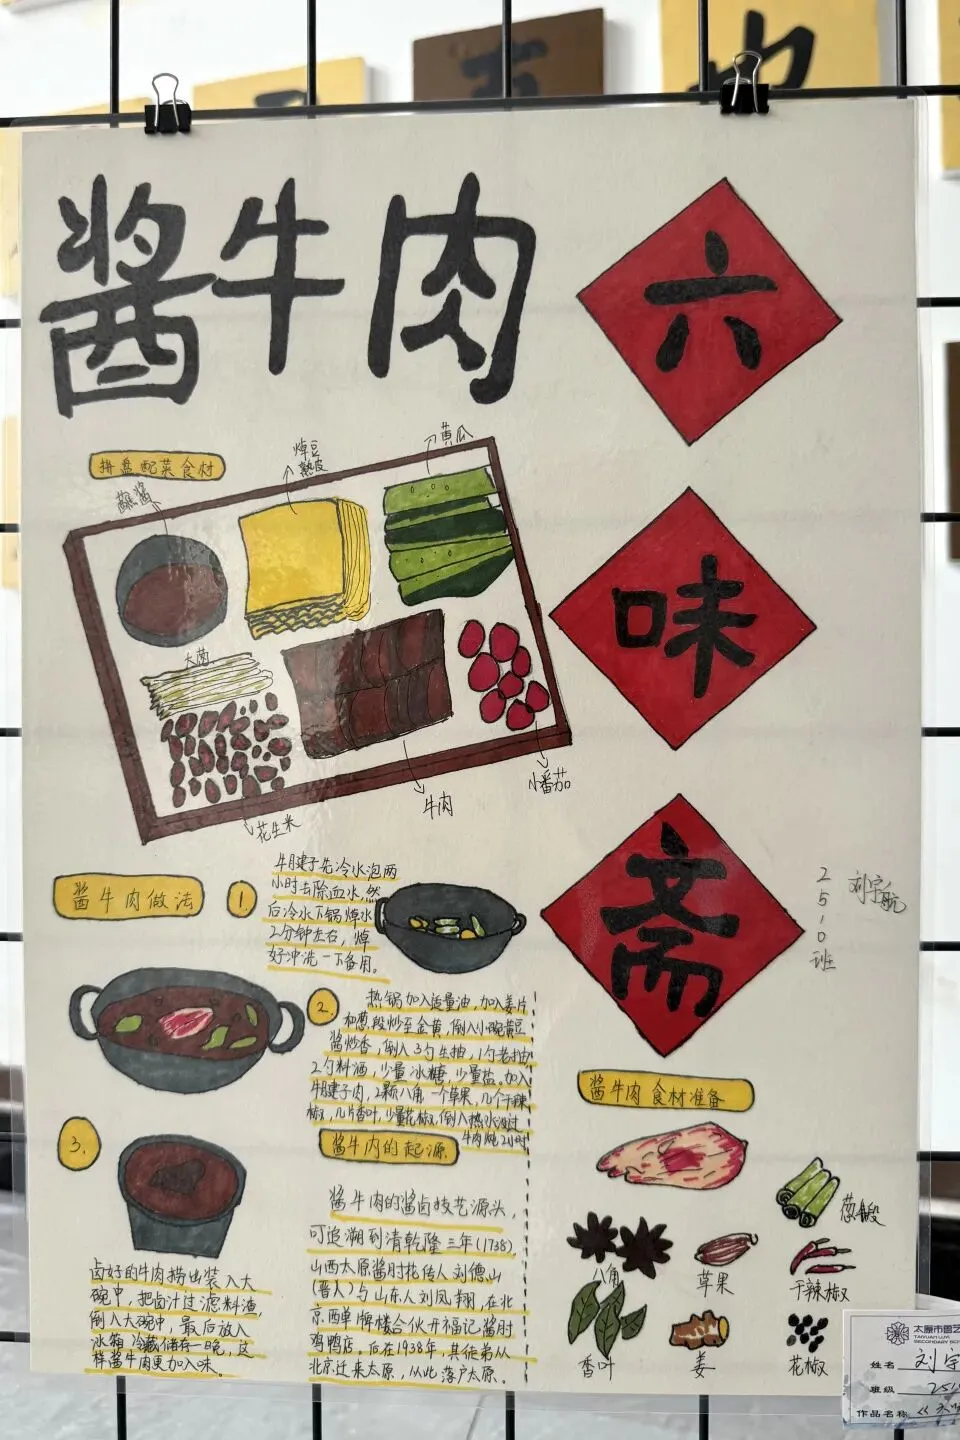 酱牛肉
六
味
斋
拼盘配菜食材
蘸酱
焯豆
熟皮
黄瓜
大葱
花生米
牛肉
小番茄
2510班
刘宇航
酱牛肉做法
1.
牛腱子先冷水泡两
小时去除血水,然
后冷水下锅焯水
2分钟左右,焯
好冲洗一下备用。
2.
热锅加入适量油,加入姜片
和葱段炒至金黄,倒入小碗黄豆
酱炒香,倒入3勺生抽,1勺老抽
2勺料酒,少量冰糖,少量盐。加入
牛腱子肉,2颗八角一个草果,几个干辣
椒,几片香叶,少量花椒,倒入热水没过
牛肉炖2小时
3.
卤好的牛肉捞出装入大
碗中,把卤汁过滤料渣
倒入大碗中,最后放入
冰箱冷藏储存一晚,这
样酱牛肉更加入味。
酱牛肉的起源
酱牛肉的酱卤技艺源头,
可追溯到清乾隆三年(1738),
山西太原酱肘花传人刘德山
(晋人)与山东人刘凤翔,在北
京西单牌楼合伙开福记酱肘
鸡鸭店。后在1938年,其徒弟从
北京迁来太原,从此落户太原。
酱牛肉食材准备
葱段
八角
草果
干辣椒
香叶
姜
花椒
太原市
TAIYUAN
SECONDARY
姓名 刘宇
班级 251
作品名称